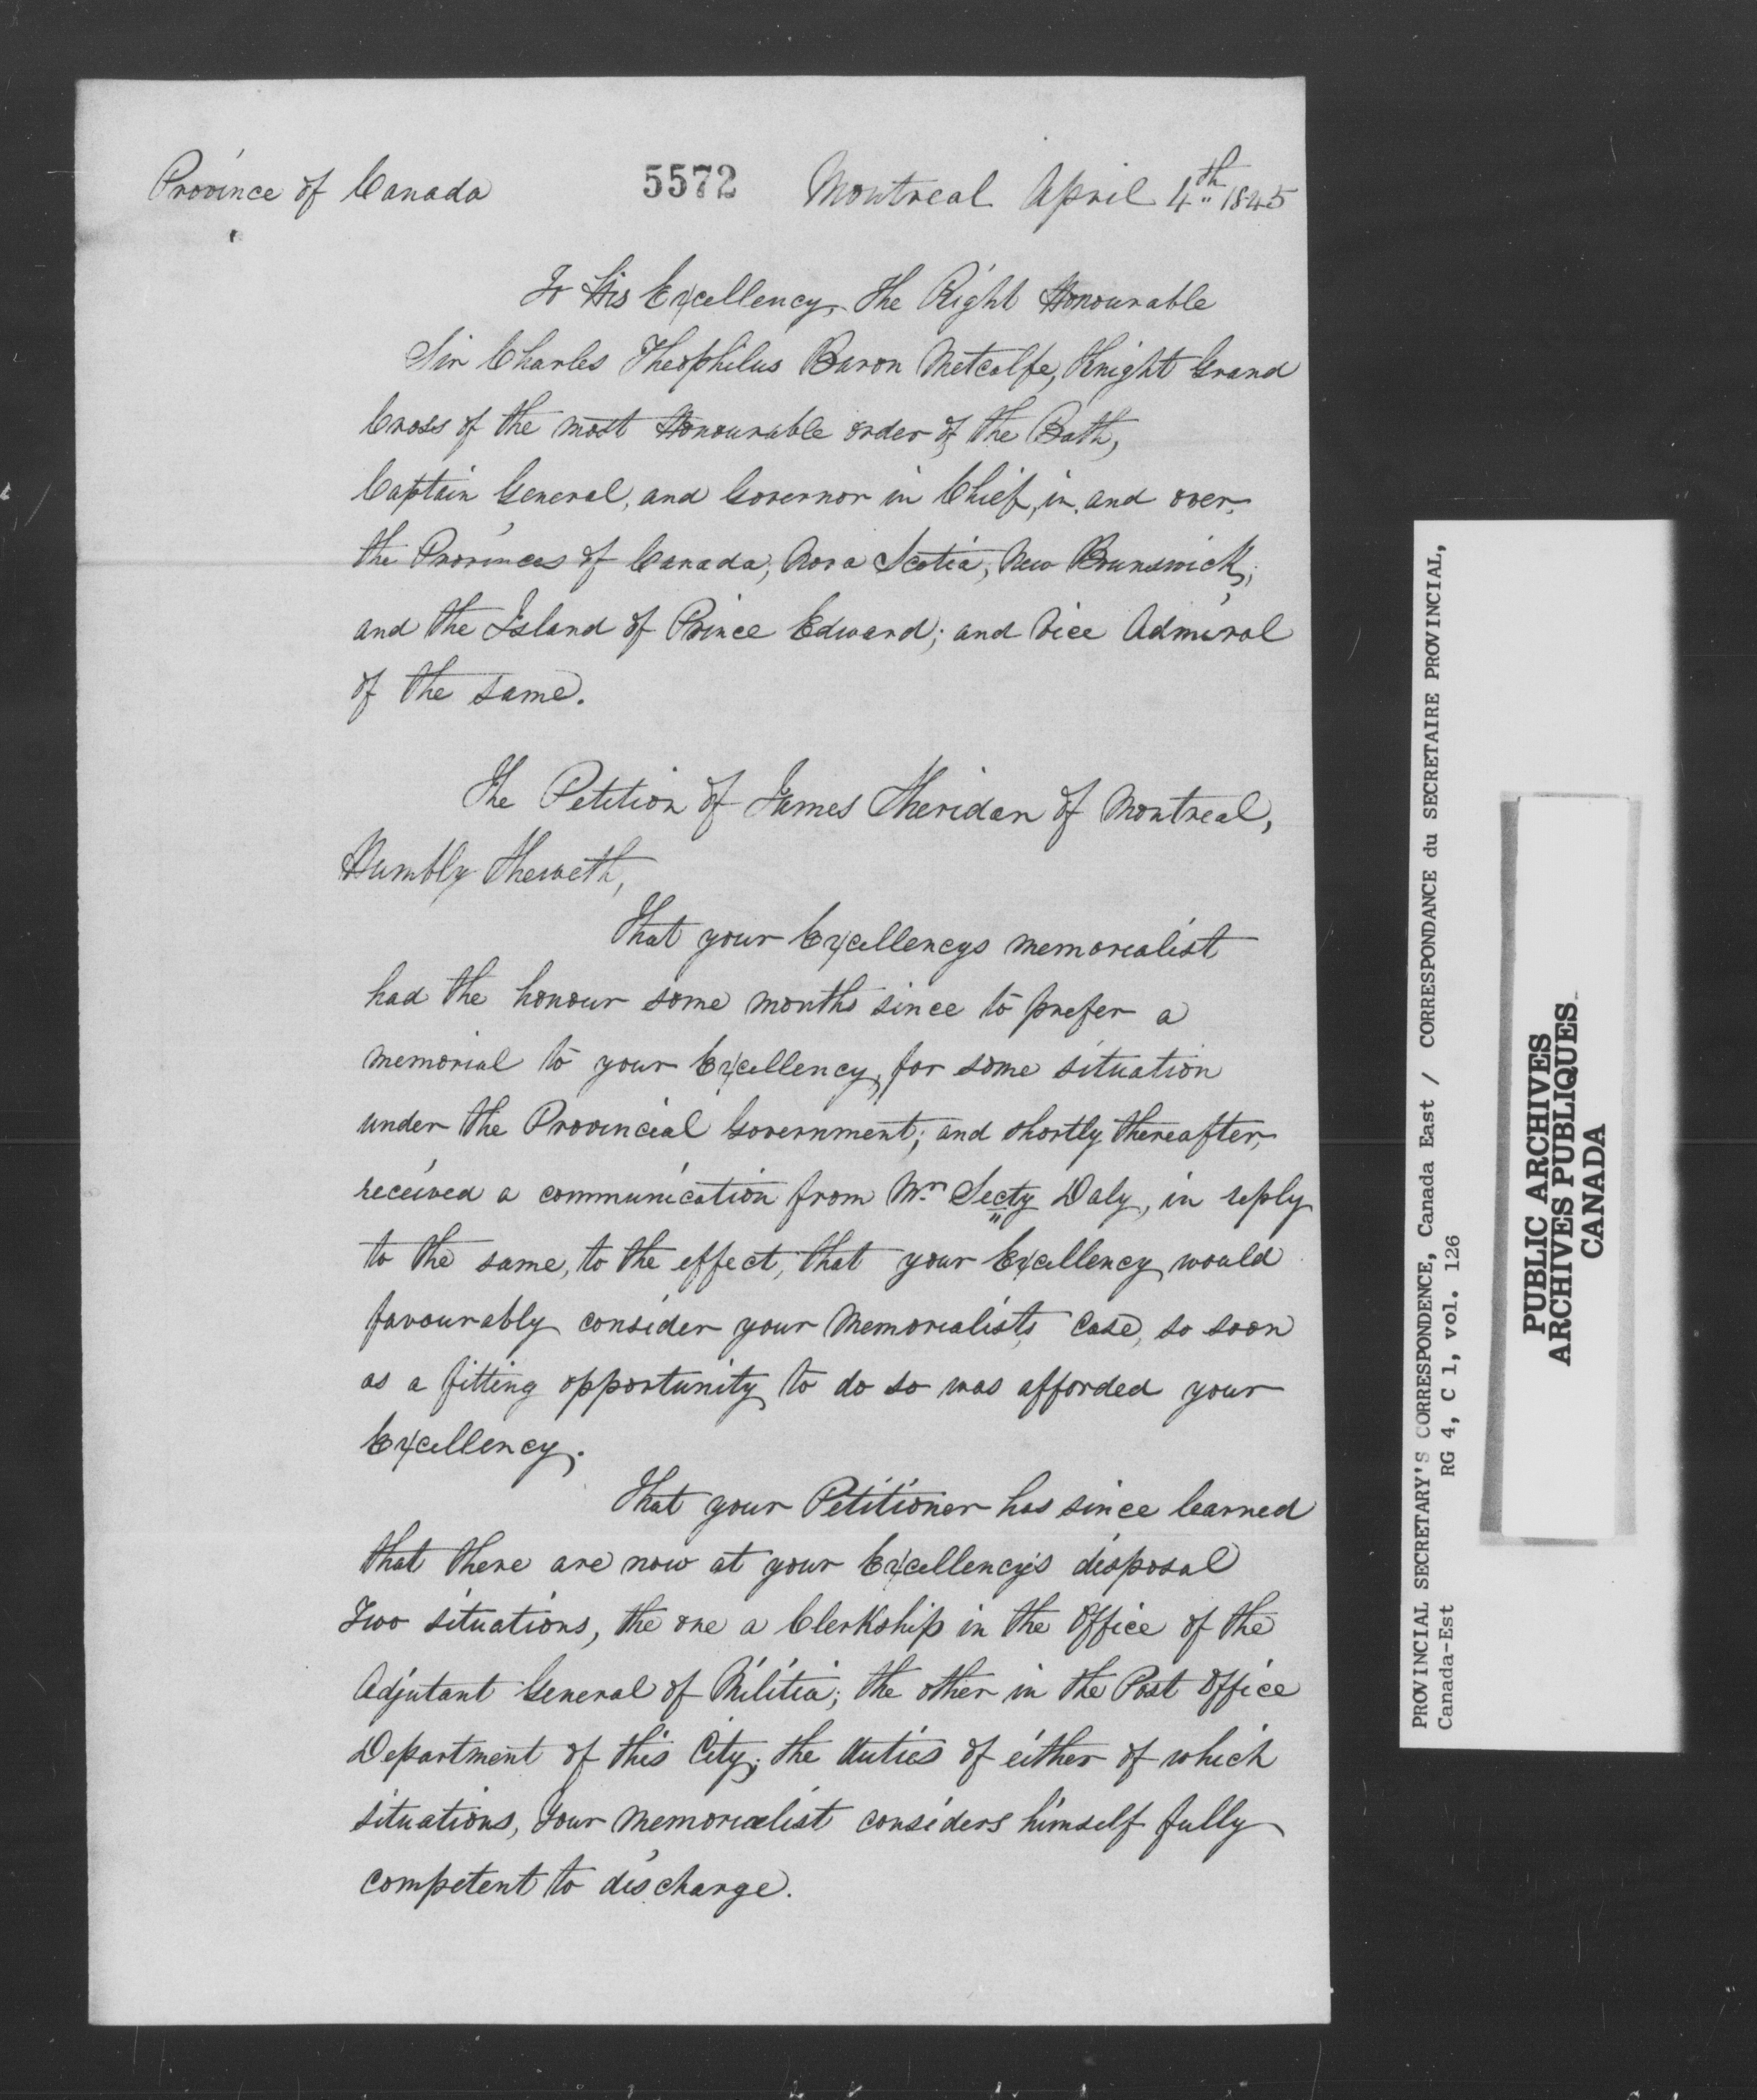 Province of Canada 5572 Montreal April 4th 1845
To His Excellency, The Right Honourable
Sir Charles Theophilus Baron Metcalfe, Knight Grand
Cross of the most Honourable order of the Bath,
Captain General, and Governor in Chief, in, and over,
the Provinces of Canada, Nova Scotia, New Brunswick,
and the Island of Prince Edward; and Vice Admiral
of the same.
The Petition of James Sheridan of Montreal,
Humbly Sheweth,
That your Excellencys memorialist
had the honour some months since to prefer a
memorial to your Excellency, for some situation
under the Provincial Government; and shortly thereafter,
received a communication from Mr. Secty Daly, in reply
to the same, to the effect, that your Excellency would
favourably consider your Memorialists case, so soon
as a fitting opportunity to do so was afforded your
Excellency.
That your Petitioner has since learned
that there are now at your Excellency's disposal
Two situations, the one a Clerkship in the Office of the
Adjutant General of Militia; the other in the Post Office
Department of this City; the duties of either of which
situations, Your Memorialist considers himself fully
competent to discharge.
PROVINCIAL SECRETARY'S CORRESPONDENCE, Canada East / CORRESPONDANCE du SECRETAIRE PROVINCIAL,
Canada-Est RG 4, C 1, vol. 126
PUBLIC ARCHIVES
ARCHIVES PUBLIQUES
CANADA